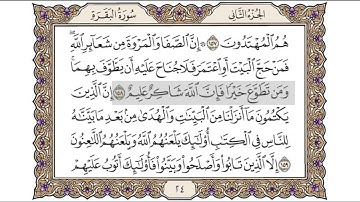 سُورَةُ الْبَقَرَةِ
الجُزْءُ الثَّانِي
هُمُ الْمُهْتَدُونَ ١٥٧ إِنَّ الصَّفَا وَالْمَرْوَةَ مِن شَعَآئِرِ اللَّهِ
فَمَنْ حَجَّ الْبَيْتَ أَوِ اعْتَمَرَ فَلَا جُنَاحَ عَلَيْهِ أَن يَطَّوَّفَ بِهِمَا
وَمَن تَطَوَّعَ خَيْرًا فَإِنَّ اللَّهَ شَاكِرٌ عَلِيمٌ ١٥٨ إِنَّ الَّذِينَ
يَكْتُمُونَ مَا أَنزَلْنَا مِنَ الْبَيِّنَاتِ وَالْهُدَىٰ مِن بَعْدِ مَا بَيَّنَّاهُ
لِلنَّاسِ فِي الْكِتَابِ أُولَٰئِكَ يَلْعَنُهُمُ اللَّهُ وَيَلْعَنُهُمُ اللَّاعِنُونَ
١٥٩ إِلَّا الَّذِينَ تَابُوا وَأَصْلَحُوا وَبَيَّنُوا فَأُولَٰئِكَ أَتُوبُ عَلَيْهِمْ
٢٤